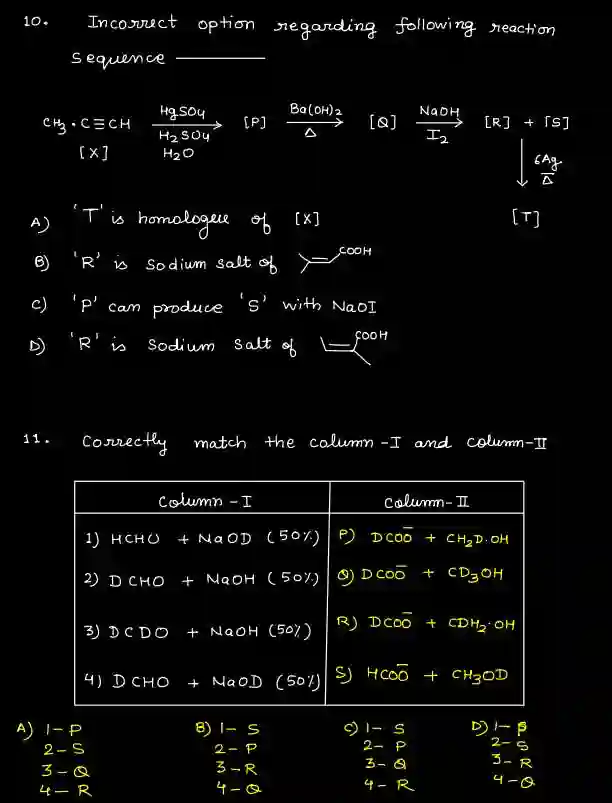 10. Incorrect option regarding following reaction
sequence ———
CH3·C≡CH HgSO4 H2SO4 H2O [P] Ba(OH)2 Δ [Q] NaOH I2 [R] + [S]
[X]
6Ag Δ
[T]
A) 'T' is homologue of [X]
B) 'R' is sodium salt of COOH
C) 'P' can produce 'S' with NaOI
D) 'R' is sodium salt of COOH
11. Correctly match the column-I and column-II
Column-I Column-II
1) HCHO + NaOD (50%) P) DCOO⁻ + CH2D·OH
2) DCHO + NaOH (50%) Q) DCOO⁻ + CD3OH
3) DCDO + NaOH (50%) R) DCOO⁻ + CDH2·OH
4) DCHO + NaOD (50%) S) HCOO⁻ + CH3OD
A) 1-P B) 1-S C) 1-S D) 1-P
2-S 2-P 2-P 2-S
3-Q 3-R 3-Q 3-R
4-R 4-Q 4-R 4-Q